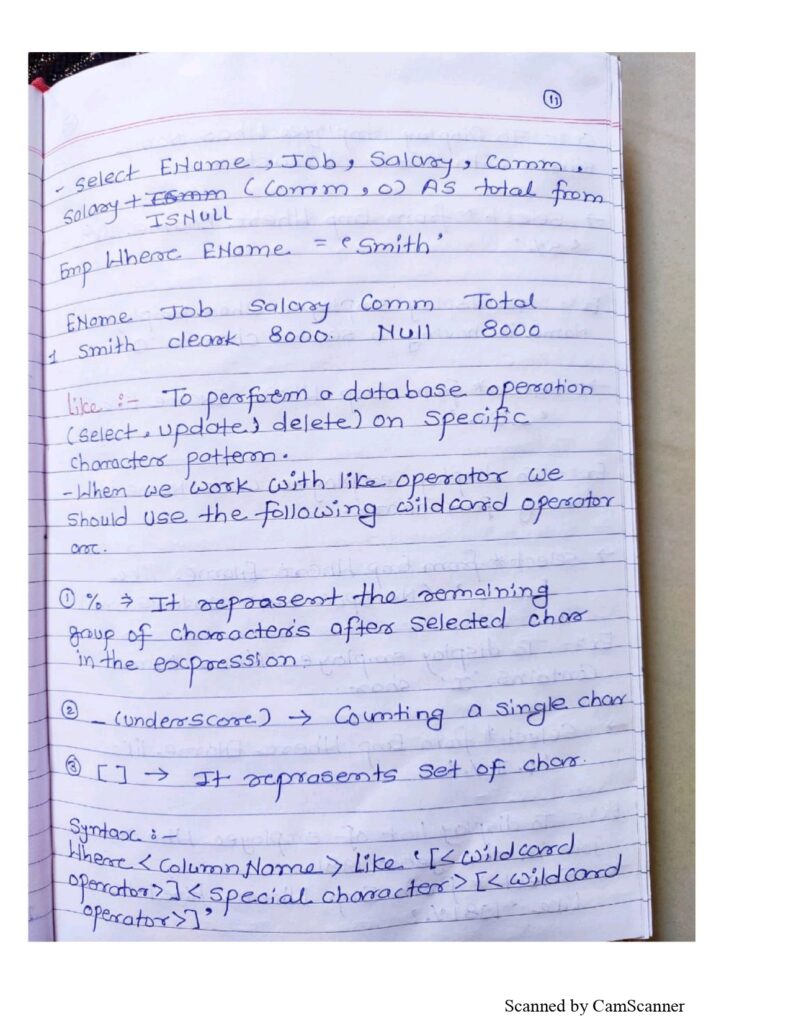 11
- Select EName, Job, Salary, Comm,
Salary + (Comm, 0) AS total from
ISNULL
Emp Where EName = 'Smith'
EName Job Salary Comm Total
1 Smith cleark 8000. Null 8000
Like :- To perform a database operation
(select, update, delete) on specific
characters pattern.
- When we work with like operator we
should use the following wildcard operator
are.
① % ⇒ It reprasent the remaining
gaup of characters after selected char
in the expression.
② _ (underscore) → Counting a single char
③ [ ] → It reprasents set of char.
Syntax :-
Where <Column Name> Like '[<wildcard
operator>] <special character> [<wildcard
operator>]'
Scanned by CamScanner